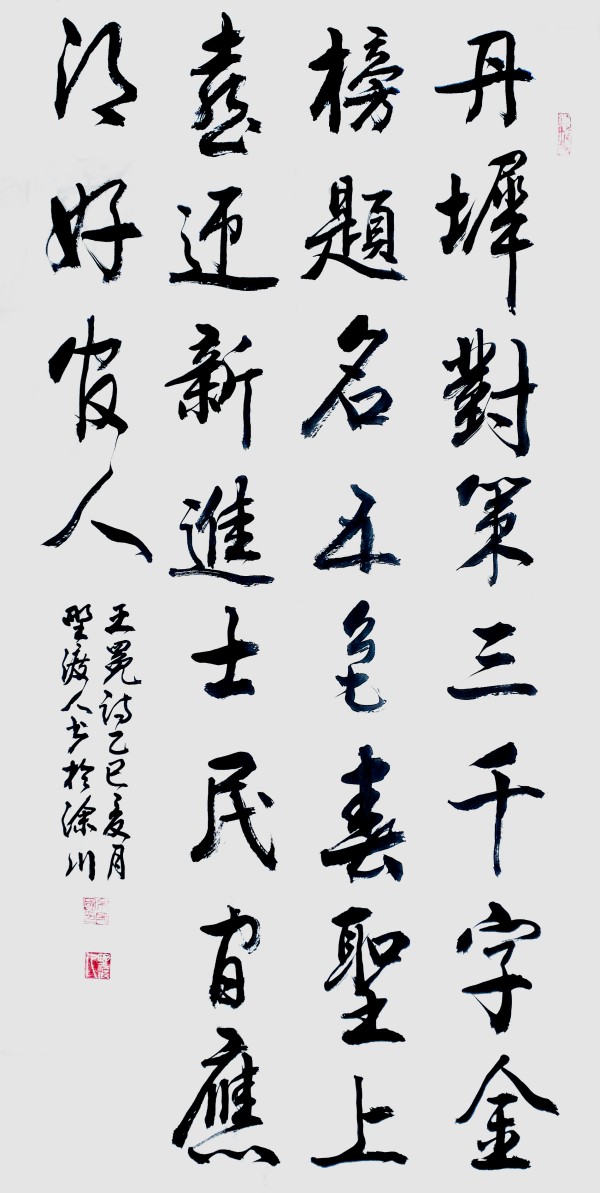 丹墀對策三千字金
榜題名五色春聖上
憙迎新進士民間應
得好官人
王冕詩乙巳夏月
野渡人书於涂川